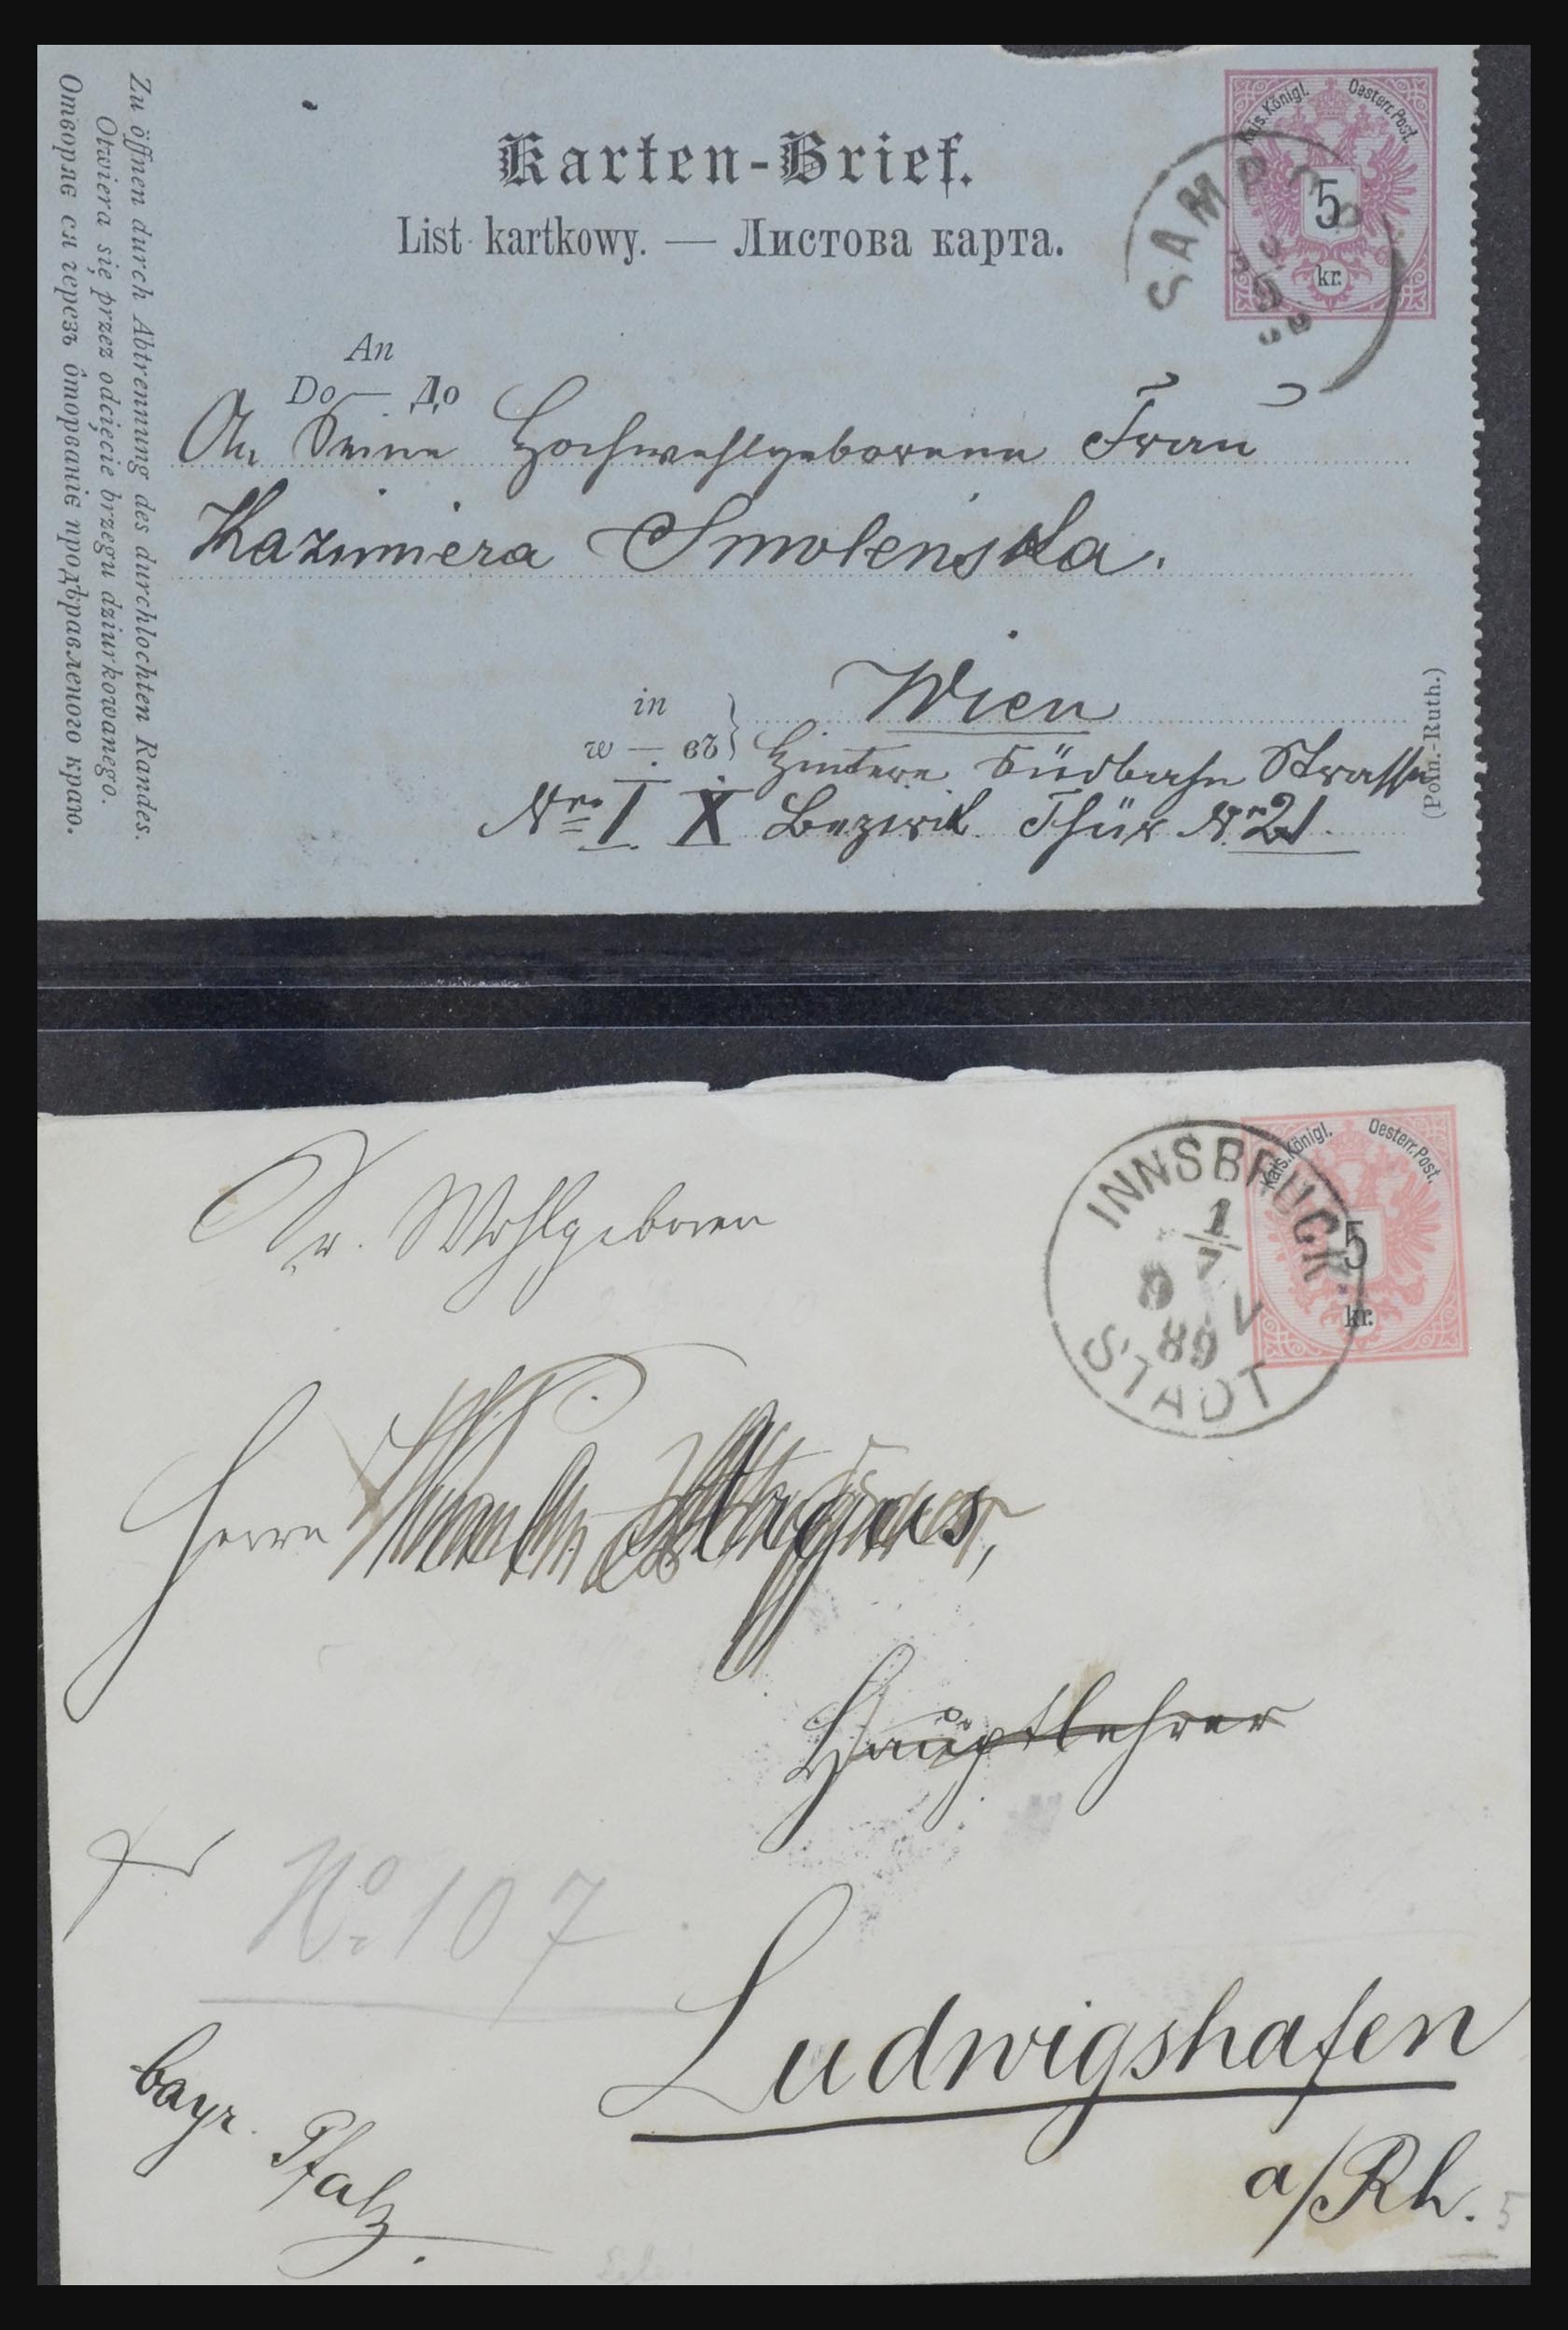 Kais. Königl. Oesterr. Post.
5
kr.
SAMBOR
Karten-Brief.
List kartkowy. — Листова карта.
Zu öffnen durch Abtrennung des durchlochten Randes.
Otwiera się przez odcięcie brzegu dziurkowanego.
Отворяє ся через ôторванiє продѣравленого краю.
An
Do — До
An Seine Hochwohlgeborene Frau
Kazimiera Smolenska.
in
w — въ
Wien
Hintere Südbahn Strasse
Nro I X Bezirk Thür Nr 21.
(Poln.-Ruth.)
Kais. Königl. Oesterr. Post.
5
kr.
INNSBRUCK
1
7
8 V
89
STADT
Sr. Wohlgeboren
Herrn
Hauptlehrer
No. 107
Ludwigshafen
a/Rh.
bayr. Pfalz.
5